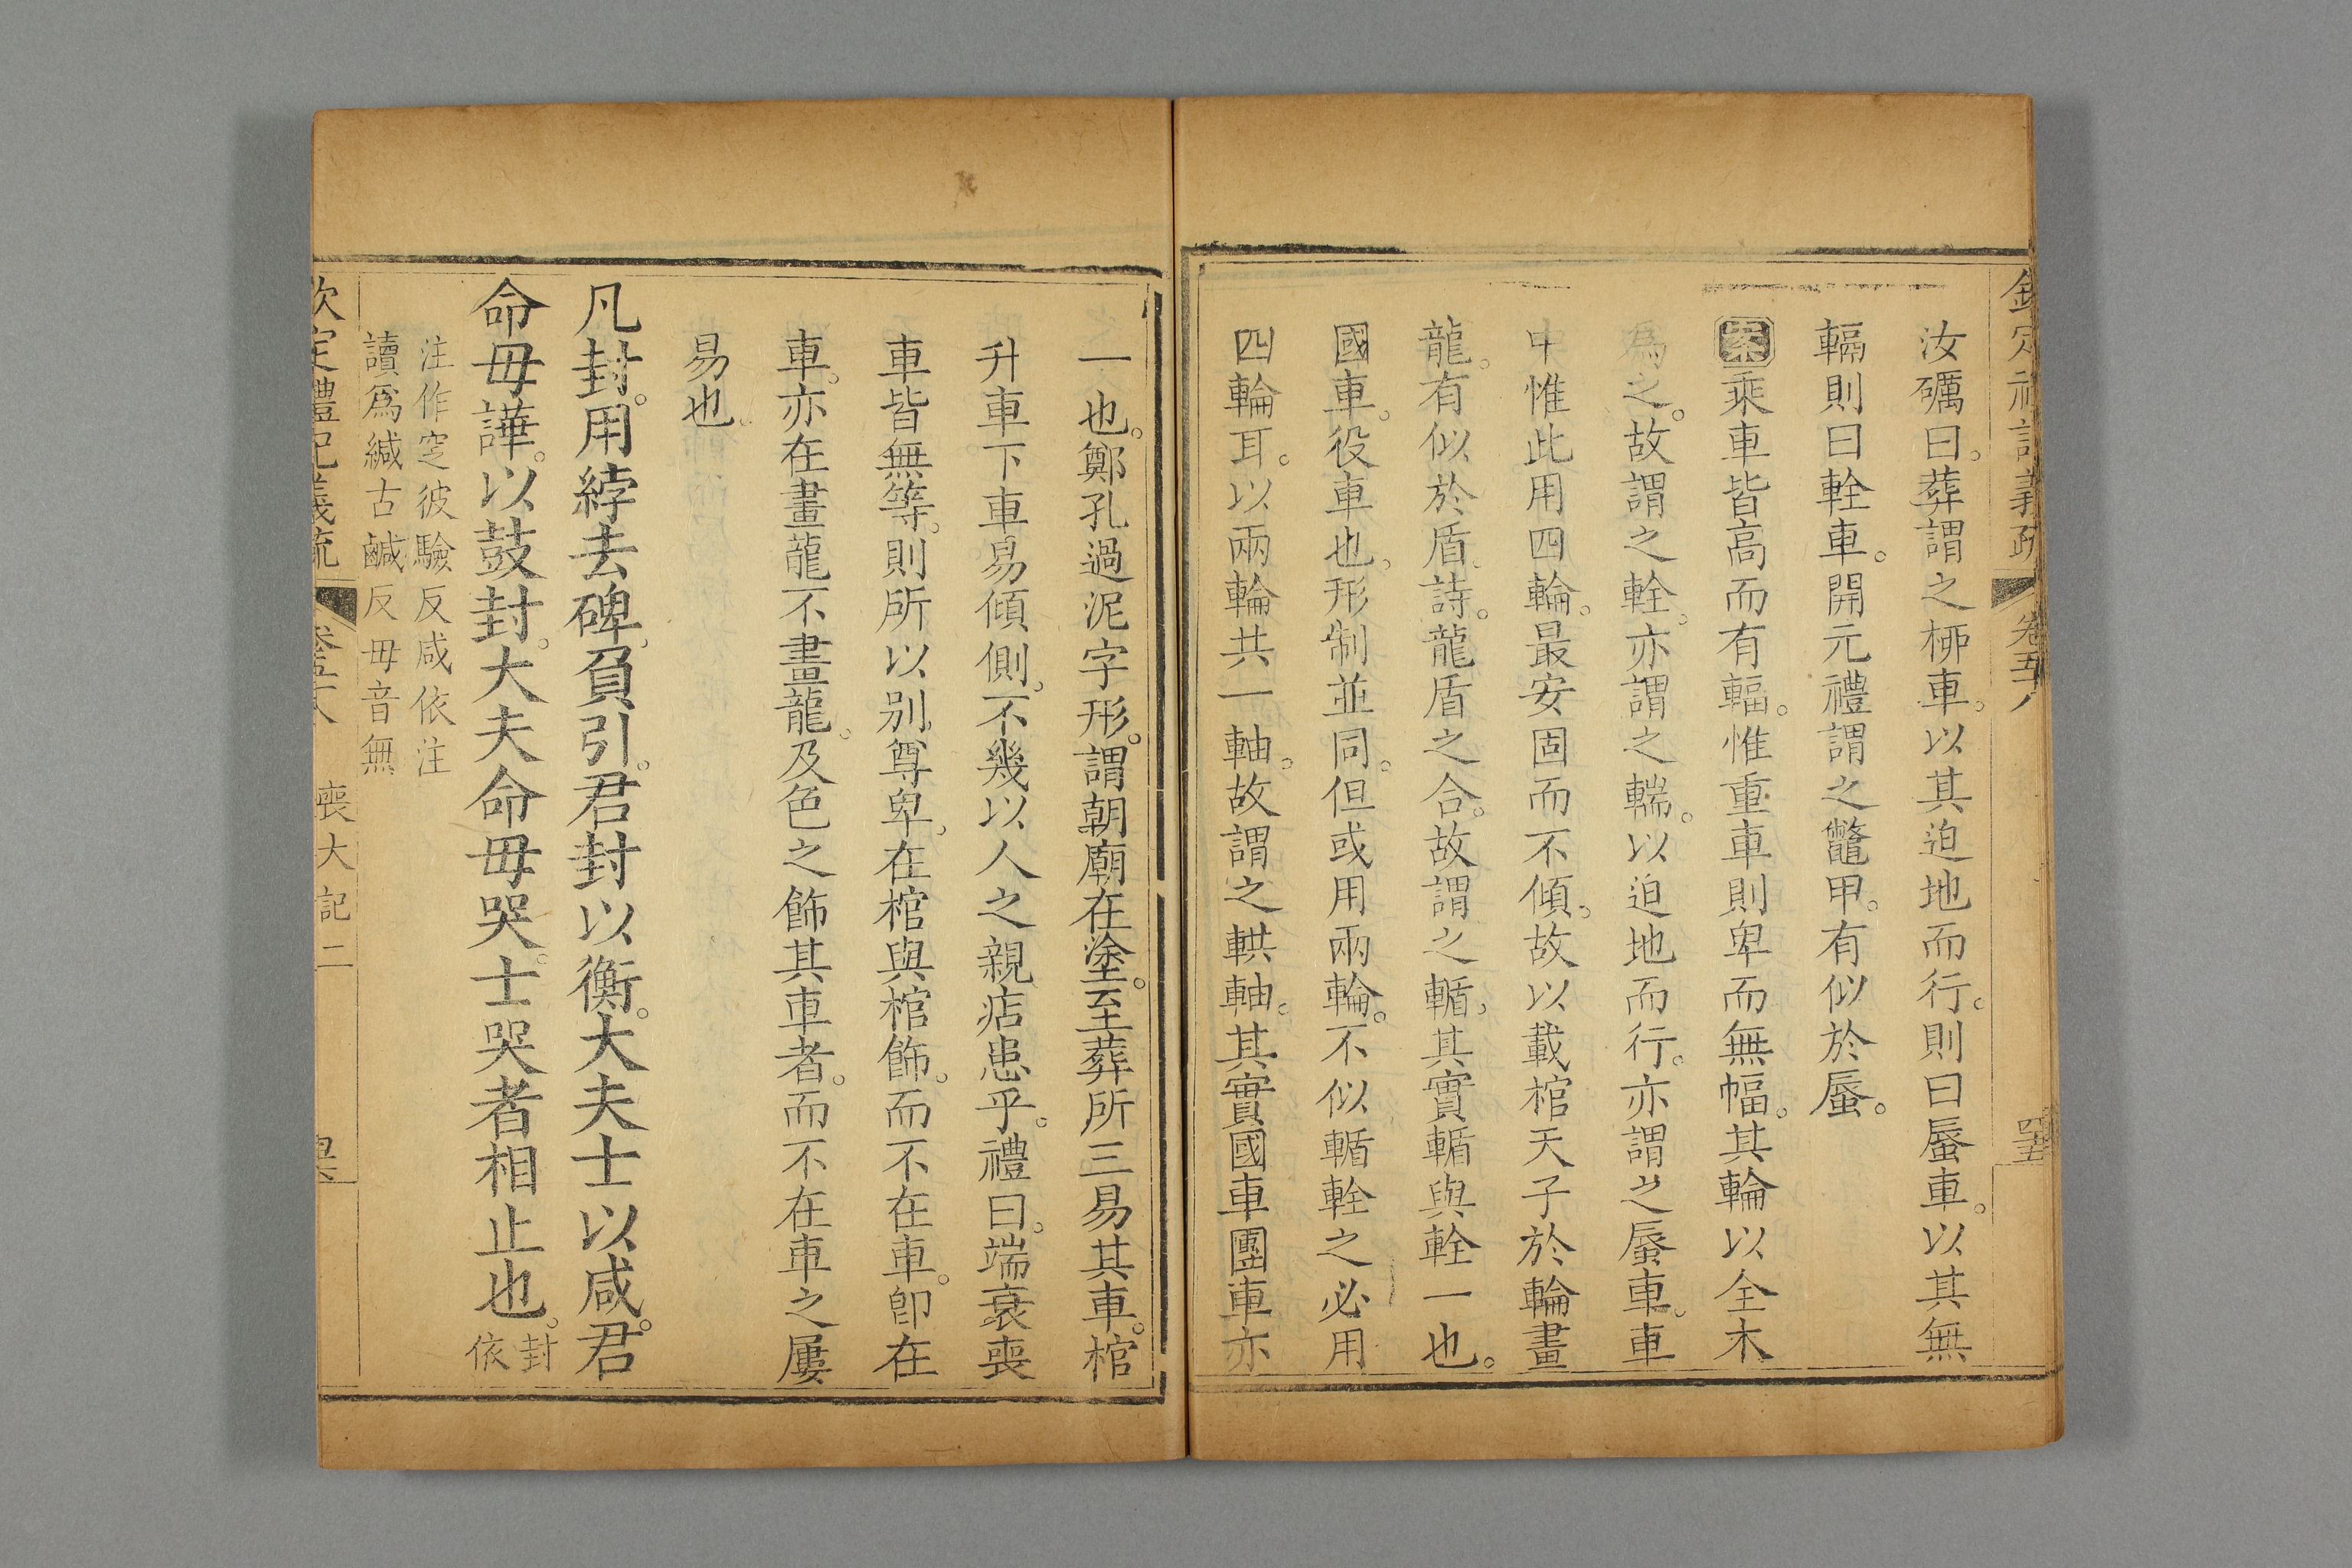 欽定禮記義疏 卷五十八 四十五
汝礪曰。葬謂之柳車。以其迫地而行。則曰蜃車。以其無
輻則曰輇車。開元禮謂之鼈甲。有似於蜃。
案乘車皆高而有輻。惟重車則卑而無幅。其輪以全木
爲之。故謂之輇。亦謂之輲。以迫地而行。亦謂之蜃車。車
中惟此用四輪。最安固而不傾。故以載棺天子於輪畫
龍。有似於盾。詩。龍盾之合。故謂之輴。其實輴與輇一也。
國車。役車也。形制並同。但或用兩輪。不似輴輇之必用
四輪耳。以兩輪共一軸。故謂之輁軸。其實國車團車亦
一也。鄭孔過泥字形。謂朝廟在塗。至葬所三易其車。棺
升車下車易傾側。不幾以人之親痁患乎。禮曰。端衰喪
車皆無等。則所以别尊卑。在棺與棺飾。而不在車。卽在
車。亦在畫龍不畫龍。及色之飾其車者。而不在車之屢
易也。
凡封。用綍去碑。負引。君封以衡。大夫士以咸。君
命毋譁。以鼓封。大夫命毋哭。士哭者相止也。封依
注作窆彼驗反咸依注
讀爲緘古鹹反毋音無
欽定禮記義疏 卷五十八 喪大記二